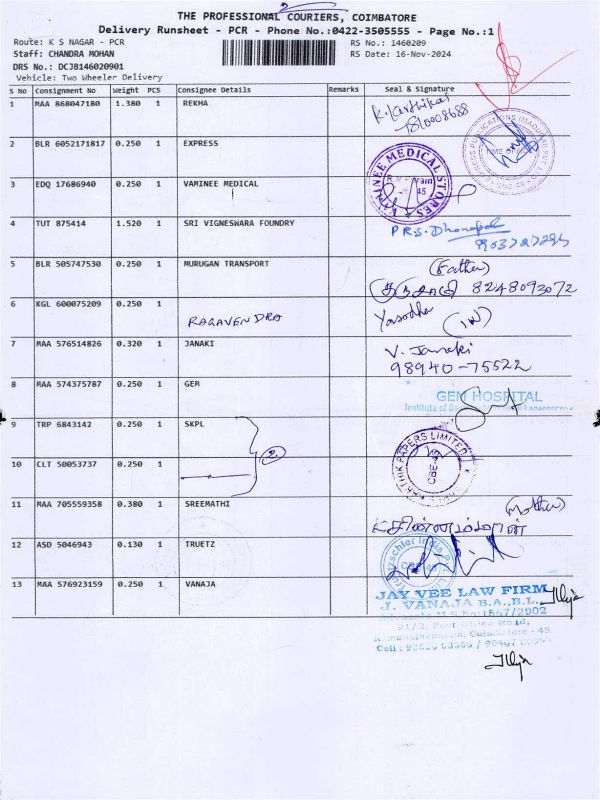 THE PROFESSIONAL COURIERS, COIMBATORE
Delivery Runsheet - PCR - Phone No.:0422-3505555 - Page No.:1
Route: K S NAGAR - PCR
RS No.: 1460209
Staff: CHANDRA MOHAN
RS Date: 16-Nov-2024
DRS No.: DCJB146020901
Vehicle: Two Wheeler Delivery
S No Consignment No Weight PCS Consignee Details Remarks Seal & Signature
1 MAA 868047180 1.380 1 REKHA K. Karthikai
2 BLR 6052171817 0.250 1 EXPRESS
3 EDQ 17686940 0.250 1 VAMINEE MEDICAL VAMINEE MEDICAL STORES
4 TUT 875414 1.520 1 SRI VIGNESWARA FOUNDRY P.R.S. Dhanapal
5 BLR 505747530 0.250 1 MURUGAN TRANSPORT (Father)
8248093072
6 KGL 600075209 0.250 1 RAGAVENDRA Yasodha
7 MAA 576514826 0.320 1 JANAKI V. Janaki
98940-75522
8 MAA 574375787 0.250 1 GEM GEM HOSPITAL
9 TRP 6843142 0.250 1 SKPL
KARTHIK PAPERS LIMITED
CBE-45
10 CLT 50053737 0.250 1
2
11 MAA 705559358 0.380 1 SREEMATHI (Mother)
12 ASD 5046943 0.130 1 TRUETZ
13 MAA 576923159 0.250 1 VANAJA JAY VEE LAW FIRM
J. VANAJA B.A.,B.L.,
91/2, Post Office Road,